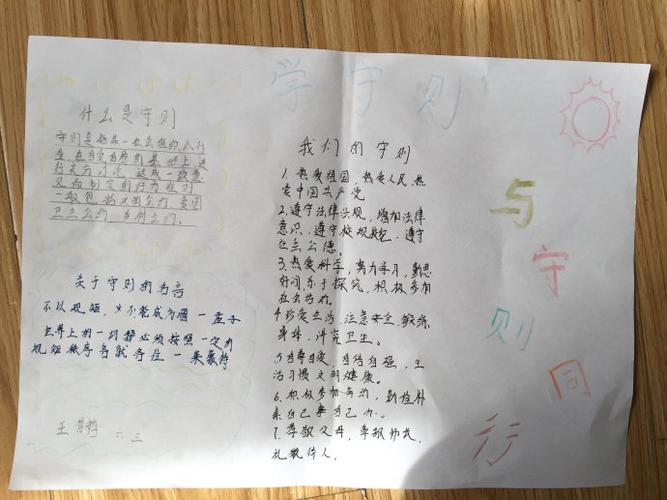 学守则
什么是守则
守则是指某一社会组织或行
业,在自觉自愿的基础上,进
行充分讨论,达成一致意
见而制定的行为准则
一般包括文明公约、爱国
卫生公约、乡村公约。
关于守则的名言
不以规矩,不能成方圆 — 孟子
世界上的一切都必须按照一定的
规矩秩序各就各位 — 莱蒙特
王
六.三
我们的守则
1.热爱祖国,热爱人民,热
爱中国共产党
2.遵守法律法规,增加法律
意识,遵守校规校纪,遵守
社会公德。
3.热爱科学,努力学习,勤思
好问,乐于探究,积极参加
社会活动。
4.珍爱生命,注意安全,锻炼
身体,讲究卫生。
5.自尊自爱,自信自强,生
活习惯文明健康。
6.积极参加劳动,勤俭朴
素自己事自己办。
7.尊敬父母,孝敬师长,
礼貌待人。
与
守
则
同
行